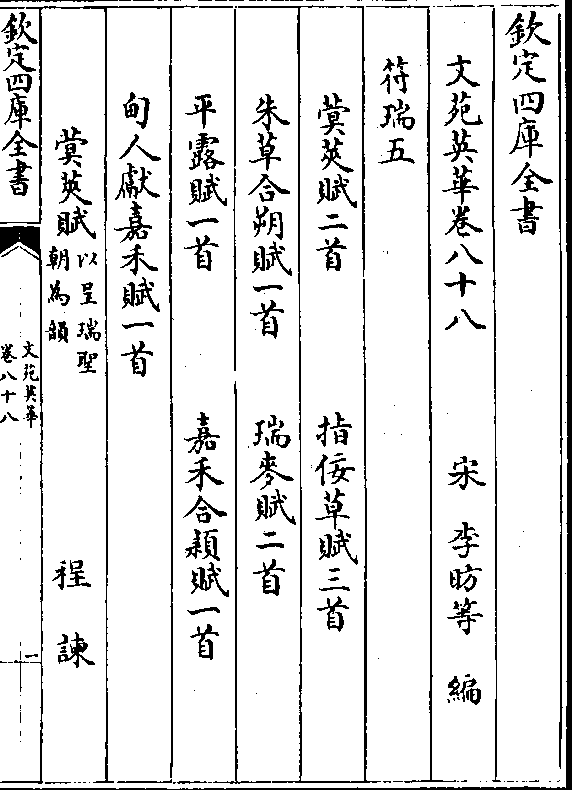 欽定四庫全書
文苑英華卷八十八
宋 李昉等 編
符瑞五
蓂莢賦二首 指佞草賦三首
朱草合朔賦一首 瑞麥賦二首
平露賦一首 嘉禾合穎賦一首
甸人獻嘉禾賦一首
蓂莢賦 以呈瑞聖朝為韻 程諫
欽定四庫全書
文苑英華
卷八十八
一